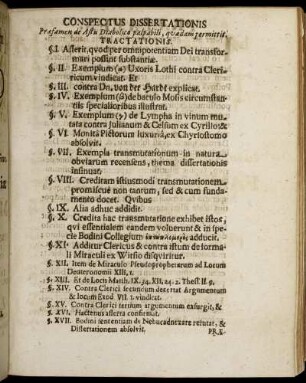 CONSPECTUS DISSERTATIONIS
Præfamen de Astu Diabolico palpabili, quædam præmittit,
TRACTATIONIS.
§. I. Asserit, quod per omnipotentiam Dei transformari
possint substantiæ.
§. II. Exemplum (α) Uxoris Lothi contra Clericum
vindicat. Et
§. III. contra Dn. von der Hardt explicat.
§. IV. Exemplum (β) de baculo Mosis circumstantiis
specialioribus illustrat.
§. V. Exemplum (γ) de Lympha in vinum mutata
contra Julianum & Celsum ex Cyrillo &
§. VI. Monita Pistorum luxuriâ, ex Chrysostomo
absolvit.
§. VII. Exempla transmutationum in natura
obviarum recensens, thema dissertationis
insinuat.
§. VIII. Creditam istiusmodi transmutationem,
promiscuè non tantum, sed & cum fundamento
docet. Qvibus
§. IX. Alia adhuc addidit.
§. X. Credita hac transmutatione exhibet istos,
qvi essentialem eandem voluerunt & in specie
Bodini Collegium adducit.
§. XI. Additur Clericus & contra istum de formali
Miraculi ex Witsio disquiritur.
§. XII. Item de Miraculo Pseudoprophetarum ad Locum
Deuteronomii XIII, 1.
§. XIII. Et de Locis Matth. IX. 34. XII, 24. 2. Thess. II. 9.
§. XIV. Contra Clerici secundum decertat Argumentum
& locum Exod. VII. 1. vindicat.
§. XV. Contra Clerici tertium argumentum exsurgit, &
§. XVI. Hactenus asserta confirmat.
§. XVII. Bodini sententiam de Nebucadnezare refutat, &
Dissertationem absolvit.
PRÆ-